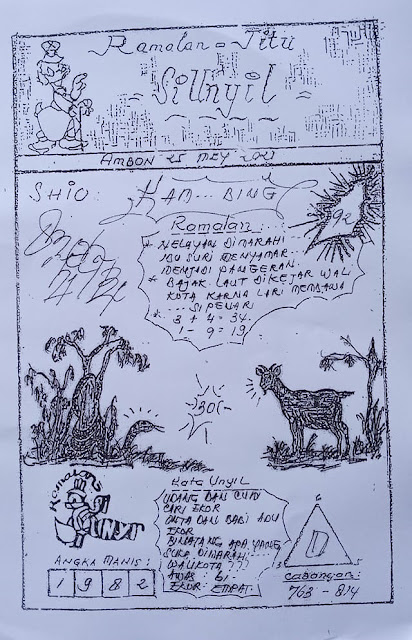 Ramalan = Jitu
= SiUnyil =
AMBON 25 MEY 2021
SHIO : KAM...BING
92
Ramalan
* NELAYAN DIMARAHI
IBU SURI MENYAMAR
MENJADI PANGERAN.
* BAJAK LAUT DIKEJAR WALI
KOTA KARNA LARI MEMBAWA
SIPENARI
* 3 + 4 = 34.
1 - 9 = 19.
-30-
Ramalan's
UNYIL
Kata Unyil
UDANG DAN CUMI
CARI EKOR
UNTA DAN BABI ADU
EKOR
BINATANG APA YANG
SUKA DIMARAHI
WALIKOTA ???
AWAS : 61
EKOR : EMPAT.
ANGKA MANIS :
1 9 8 2
6
D
Cabangan :
763 - 814